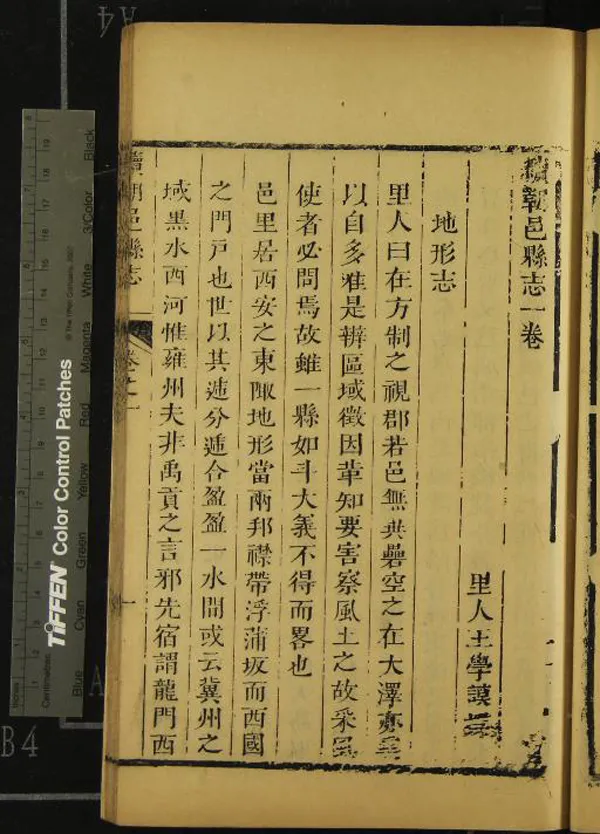 續朝邑縣志一卷
里人王學謨
地形志
里人曰在方制之視郡若邑無共礨空之在大澤亦
以自多雖是辨區域徵因革知要害察風土之故采
使者必問焉故雖一縣如斗大義不得而畧也
邑里居西安之東陬地形當兩邦襟帶浮蒲坂而西國
之門戸也世以其遞分遞合盈盈一水間或云冀州之
域黒水西河惟雍州夫非禹貢之言邪先宿謂龍門西
續朝邑縣志
卷之一
一
TIFFEN Color Control Patches
© The Tiffen Company, 2007
Blue
Cyan
Green
Yellow
Red
Magenta
White
3/Color
Black
Inches
Centimetres
B4
A4